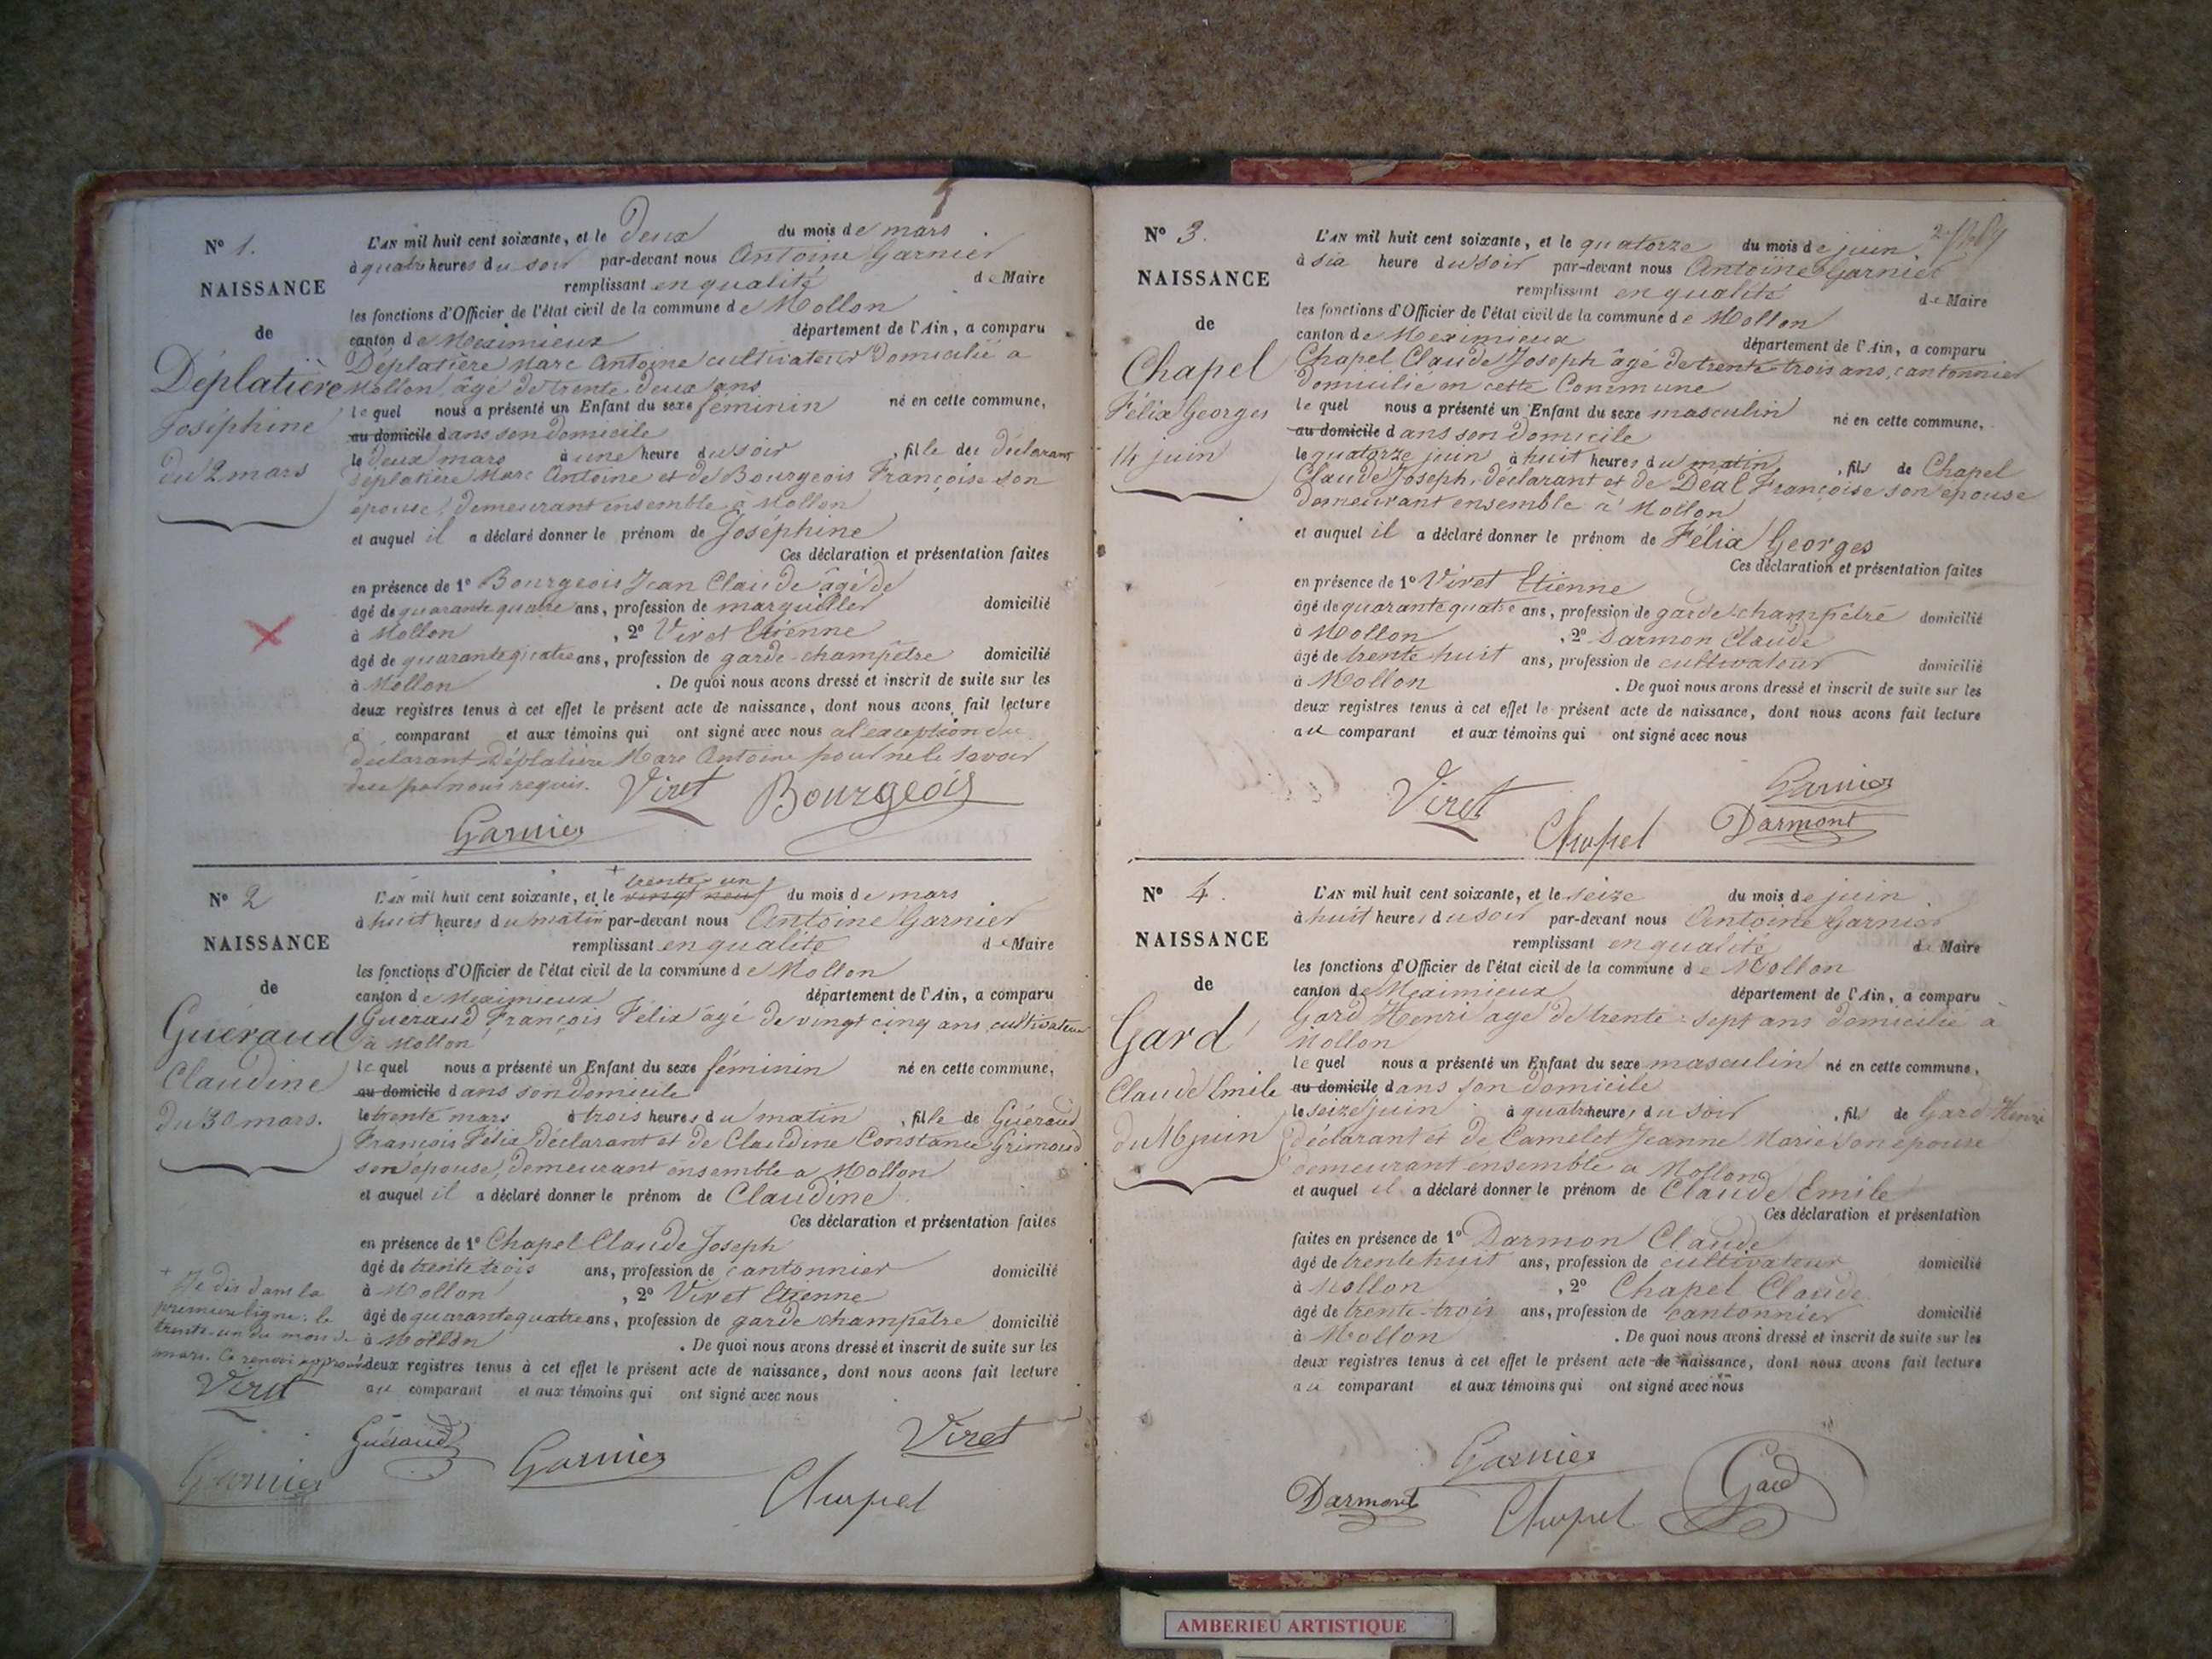 N° 1.
NAISSANCE
de
Déplatière
Joséphine
du 2 mars
L'AN mil huit cent soixante, et le deux du mois de mars
à quatre heures du soir par-devant nous Antoine Garnier
remplissant en qualité de Maire
les fonctions d'Officier de l'état civil de la commune de Mollon
canton de Meximieux département de l'Ain, a comparu
Déplatière Marc Antoine cultivateur domicilié a
Mollon âgé de trente deux ans
lequel nous a présenté un Enfant du sexe féminin né en cette commune,
au domicile dans son domicile
le deux mars à une heure du soir, fille des déclarant
Déplatière Marc Antoine et de Bourgeois Françoise son
épouse, demeurant ensemble à Mollon
et auquel il a déclaré donner le prénom de Joséphine
Ces déclaration et présentation faites
en présence de 1° Bourgeois Jean Claude âgé de
âgé de quarante quatre ans, profession de marguiller domicilié
à Mollon, 2° Viret Etienne
âgé de quarante quatre ans, profession de garde-champêtre domicilié
à Mollon. De quoi nous avons dressé et inscrit de suite sur les
deux registres tenus à cet effet le présent acte de naissance, dont nous avons fait lecture
a comparant et aux témoins qui ont signé avec nous a l'exception du
déclarant Déplatière Marc Antoine pour ne le savoir
de par nous requis. Viret Bourgeois
Garnier
N° 2
NAISSANCE
de
Guéraud
Claudine
du 30 mars.
+ Je dis dans la
premiere ligne: le
trente-un du mois de
mars. Ce renvoi approuvé
Viret
Garnier
+ trente un
L'AN mil huit cent soixante, et le vingt neuf du mois de mars
à huit heures du matin par-devant nous Antoine Garnier
remplissant en qualité de Maire
les fonctions d'Officier de l'état civil de la commune de Mollon
canton de Meximieux département de l'Ain, a comparu
Guéraud François Félix âgé de vingt cinq ans cultivateur
à Mollon
lequel nous a présenté un Enfant du sexe féminin né en cette commune,
au domicile dans son domicile
le trente mars à trois heures du matin, fille de Guéraud
François Félix déclarant et de Claudine Constance Grimoud
son épouse, demeurant ensemble a Mollon
et auquel il a déclaré donner le prénom de Claudine
Ces déclaration et présentation faites
en présence de 1° Chapel Claude Joseph
âgé de trente trois ans, profession de cantonnier domicilié
à Mollon, 2° Viret Etienne
âgé de quarante quatre ans, profession de garde champêtre domicilié
à Mollon. De quoi nous avons dressé et inscrit de suite sur les
deux registres tenus à cet effet le présent acte de naissance, dont nous avons fait lecture
au comparant et aux témoins qui ont signé avec nous
Guéraud Garnier Viret
Chapel
N° 3.
NAISSANCE
de
Chapel
Félix Georges
14 juin
L'AN mil huit cent soixante, et le quatorze du mois de juin
à six heure du soir par-devant nous Antoine Garnier
remplissant en qualité de Maire
les fonctions d'Officier de l'état civil de la commune de Mollon
canton de Meximieux département de l'Ain, a comparu
Chapel Claude Joseph âgé de trente trois ans, cantonnier
domicilié en cette Commune
lequel nous a présenté un Enfant du sexe masculin né en cette commune,
au domicile dans son domicile
le quatorze juin à huit heures du matin, fils de Chapel
Claude Joseph, déclarant et de Déal Françoise son épouse
demeurant ensemble à Mollon
et auquel il a déclaré donner le prénom de Félix Georges
Ces déclaration et présentation faites
en présence de 1° Viret Etienne
âgé de quarante quatre ans, profession de garde-champêtre domicilié
à Mollon, 2° Darmon Claude
âgé de trente huit ans, profession de cultivateur domicilié
à Mollon. De quoi nous avons dressé et inscrit de suite sur les
deux registres tenus à cet effet le présent acte de naissance, dont nous avons fait lecture
au comparant et aux témoins qui ont signé avec nous
Viret Chapel Garnier
Darmont
N° 4.
NAISSANCE
de
Gard
Claude Emile
du 16 juin
L'AN mil huit cent soixante, et le seize du mois de juin
à huit heures du soir par-devant nous Antoine Garnier
remplissant en qualité de Maire
les fonctions d'Officier de l'état civil de la commune de Mollon
canton de Meximieux département de l'Ain, a comparu
Gard Henri âgé de trente-sept ans domicilié à
Mollon
lequel nous a présenté un Enfant du sexe masculin né en cette commune,
au domicile dans son domicile
le seize juin à quatre heures du soir, fils de Gard Henri
déclarant et de Camelet Jeanne Marie son épouse
demeurant ensemble a Mollon
et auquel il a déclaré donner le prénom de Claude Emile
Ces déclaration et présentation
faites en présence de 1° Darmon Claude
âgé de trente huit ans, profession de cultivateur domicilié
à Mollon, 2° Chapel Claude
âgé de trente-trois ans, profession de cantonnier domicilié
à Mollon. De quoi nous avons dressé et inscrit de suite sur les
deux registres tenus à cet effet le présent acte de naissance, dont nous avons fait lecture
au comparant et aux témoins qui ont signé avec nous
Garnier
Darmont Chapel Gard
AMBERIEU ARTISTIQUE